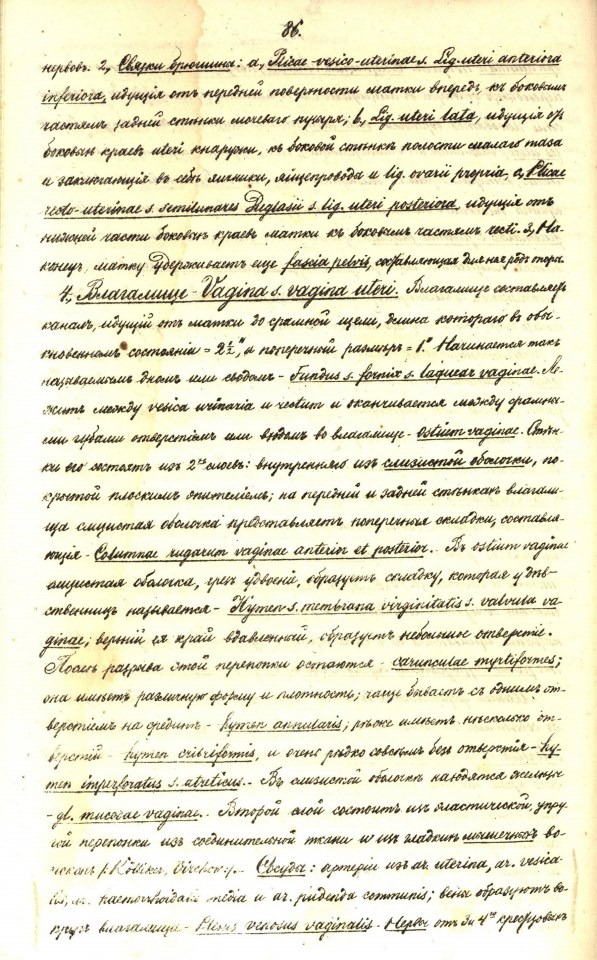 86.
нервовъ. 2, Связки брюшина: a, Plicae vesico-uterinae s. Lig. uteri anteriora
inferiora, идущія отъ передней поверхности матки впередъ къ боковымъ
частямъ задней стѣнки мочеваго пузыря; b, Lig. uteri lata, идущія отъ
боковыхъ краевъ uteri кнаружи, къ боковой стѣнкѣ полости малаго таза
и заключающія въ себѣ яичники, яйцепровода и lig. ovarii propria, c, Plicae
recto-uterinae s. semilunares Duglasii s. lig. uteri posteriora, идущія отъ
нижней части боковыхъ краевъ матки къ боковымъ частямъ recti. 3, На-
конецъ, матку удерживаетъ еще fascia pelvis, составляющая для нея родъ опоры.
4, Влагалище - Vagina s. vagina uteri. Влагалище составляетъ
каналъ, идущій отъ матки до срамной щели, длина котораго въ обы-
кновенномъ состояніи = 2½", а поперечный размѣръ = 1". Начинается такъ
называемымъ дномъ или сводомъ - Fundus s. fornix s. laquear vaginae. Ле-
житъ между vesica urinaria и rectum и оканчивается между срамны-
ми губами отверстіемъ или входомъ во влагалище - Ostium vaginae. Стѣн-
ки его состоятъ изъ 2хъ слоевъ: внутренняго изъ слизистой оболочки, по-
крытой плоскимъ эпителіемъ; на передней и задней стѣнкахъ влагали-
ща слизистая оболочка представляетъ поперечныя складки, составля-
ющія - Columnae rugarum vaginae anterior et posterior. Въ ostium vaginae
слизистая оболочка, чрезъ удвоеній, образуетъ складку, которая у дѣв-
ственницъ называется - Hymen s. membrana virginitatis s. valvula va-
ginae; верхній ея край вдавленный, образуетъ небольшое отверстіе.
Послѣ разрыва этой перепонки остаются - carunculae myrtiformes;
она имѣетъ различную форму и плотность; чаще бываетъ съ однимъ от-
верстіемъ на срединѣ - hymen annularis; рѣже имѣетъ нѣсколько от-
верстій - hymen cribriformis, и очень рѣдко совсѣмъ безъ отверстія - hy-
men imperforatus s. atreticus. - Въ слизистой оболочкѣ находятся железы
- gl. mucosae vaginae. - Второй слой состоитъ изъ эластической, упру-
гой перепонки изъ соединительной ткани и изъ гладкихъ мышечныхъ во-
локонъ /: Kölliker, Virchow :/. - Сосуды: артеріи изъ ar. uterina, ar. vesica-
lis, ar. haemorrhoidalis media и ar. pudenda communis; вены образуютъ во-
кругъ влагалища - Plexus venosus vaginalis. - Нервы отъ 3 и 4го крестцовыхъ